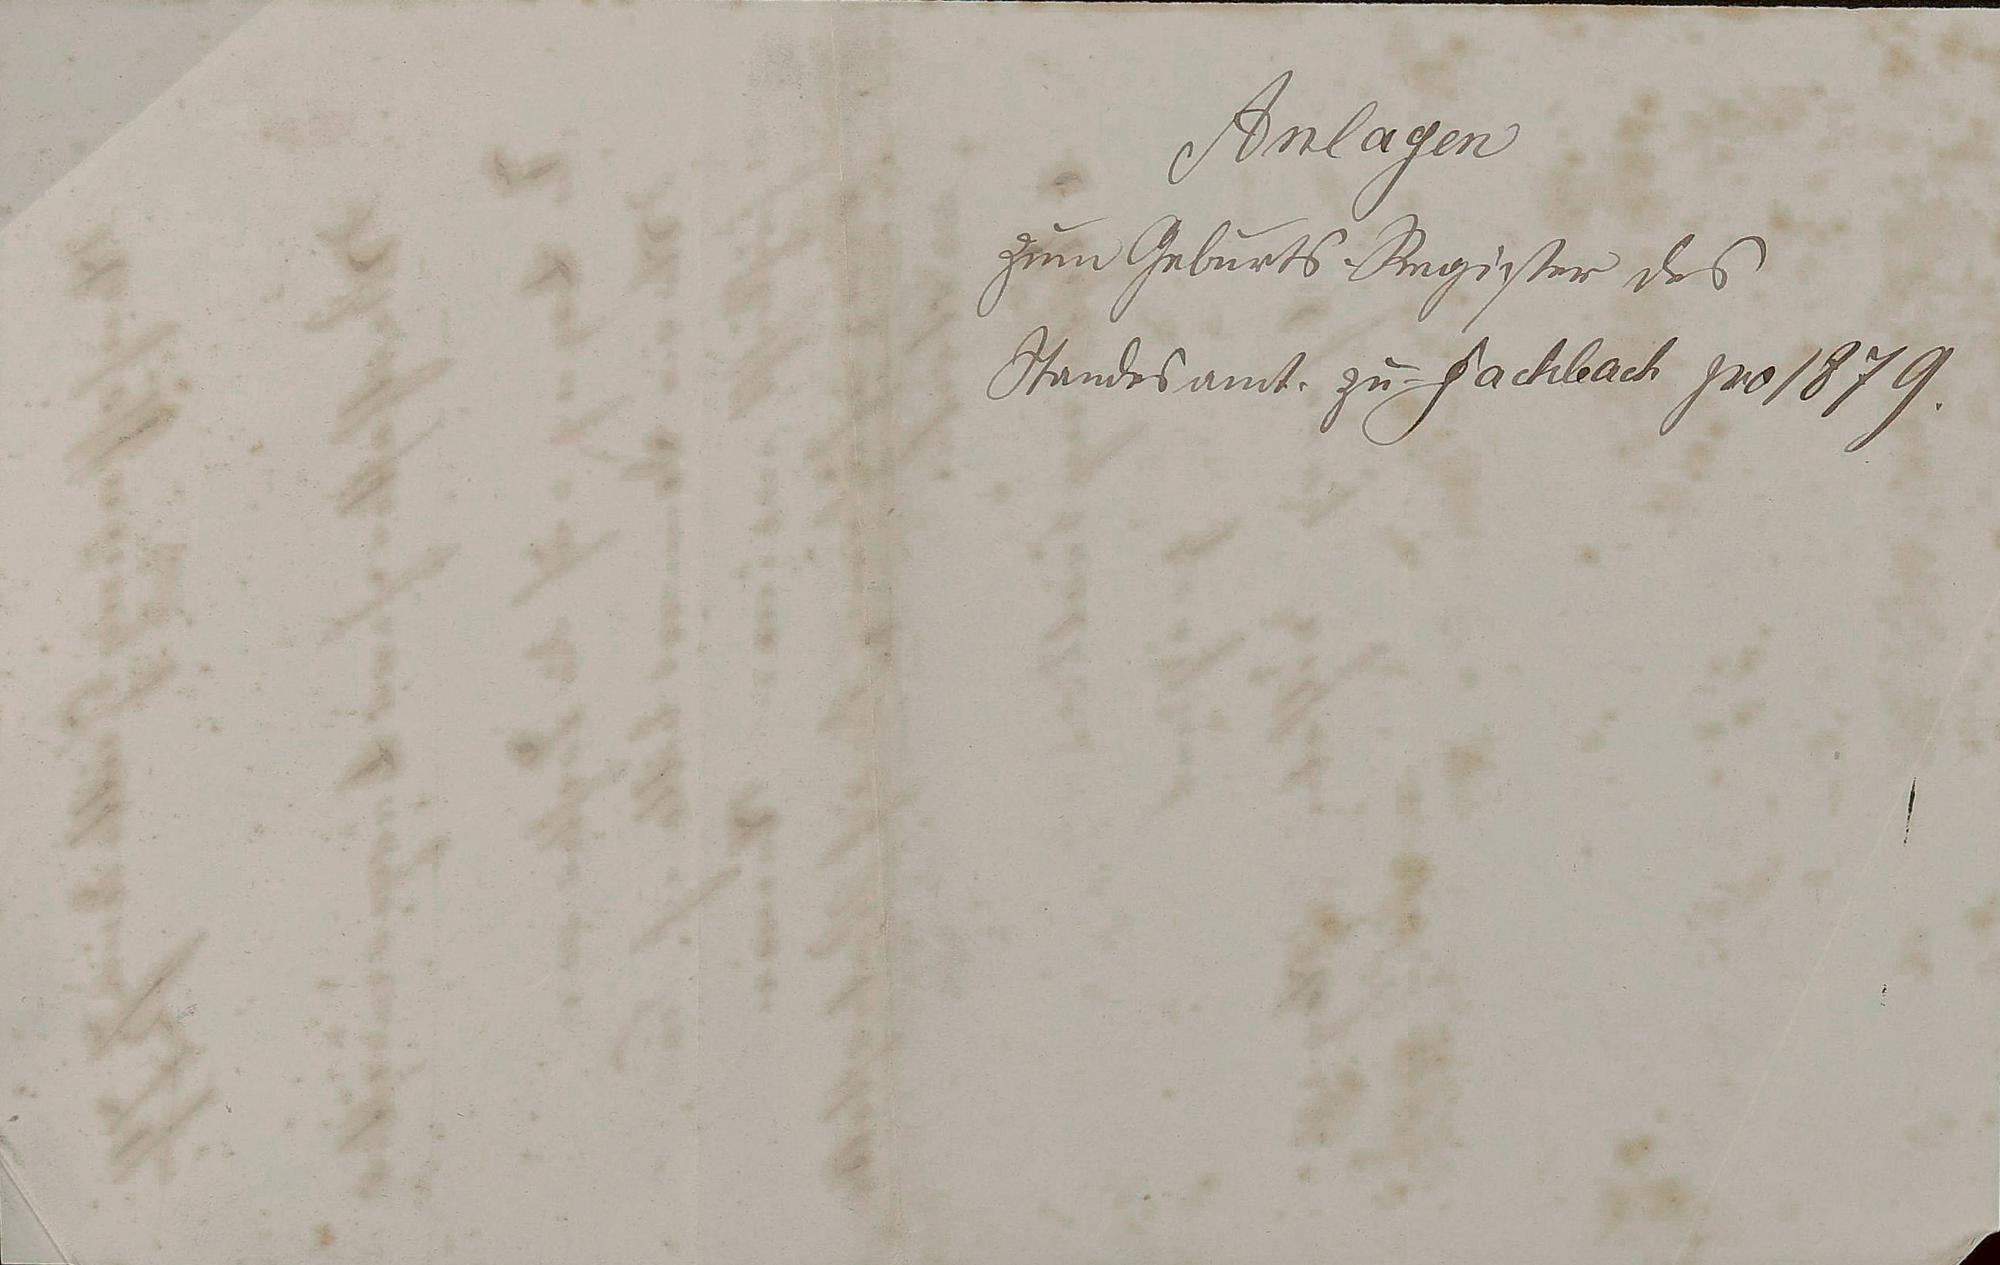 Anlagen
zum Geburts-Register des
Standesamt. zu Fachbach pro 1879.